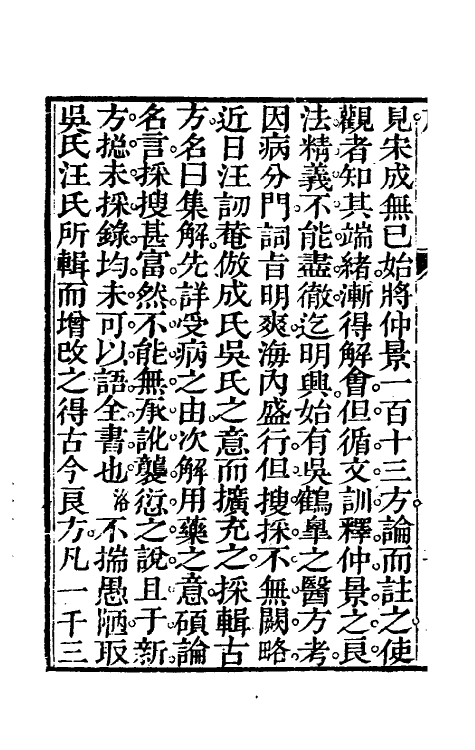 見宋成無已始將仲景一百十三方論而註之使
觀者知其端緒漸得解會但循文訓釋仲景之良
法精義不能盡徹迄明興始有吳鶴臯之醫方考
因病分門詞旨明爽海內盛行但搜採不無闕略
近日汪訒菴倣成氏吳氏之意而擴充之採輯古
方名曰集解先詳受病之由次解用藥之意碩論
名言採搜甚富然不能無承訛襲愆之說且于新
方搃未採錄均未可以語全書也洛不揣愚陋取
吳氏汪氏所輯而增改之得古今良方凡一千三